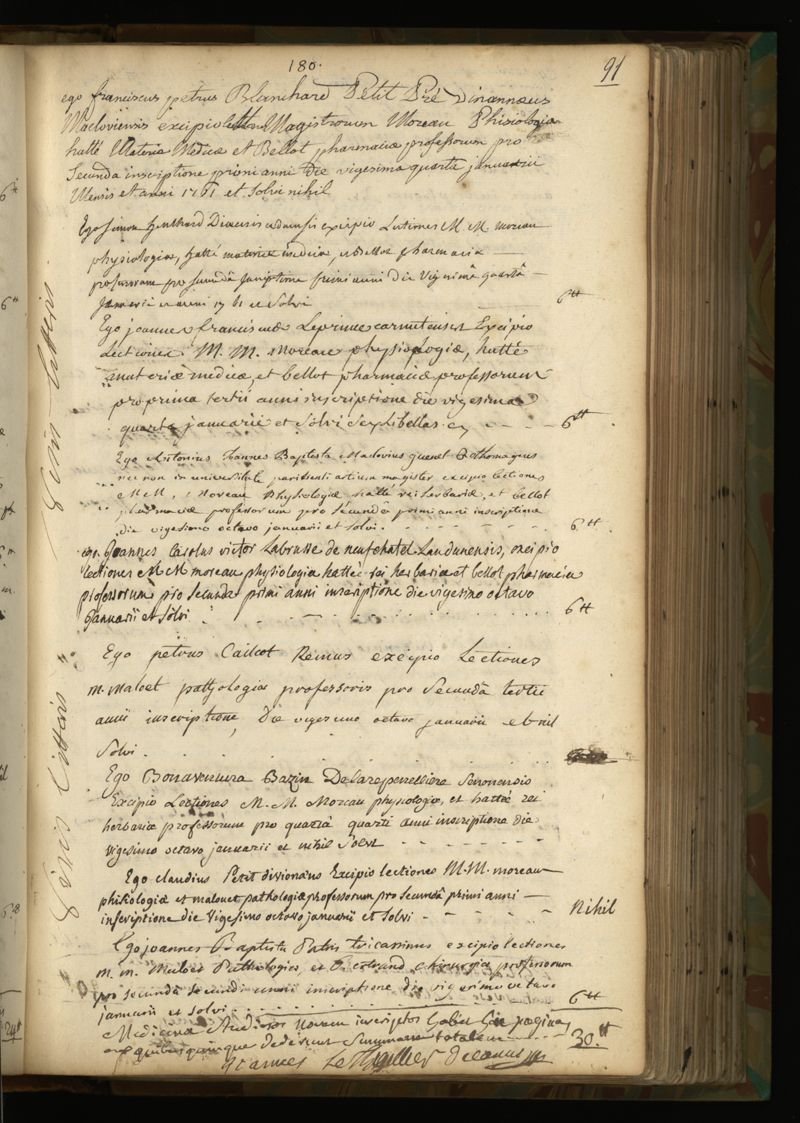 180.
91
ego franciscus petrus Blanchard Petit Pré Dinannæus
Macloviensis excipio Magistrorum Moreau Phisiologiæ
hatté Materiæ Medicæ et Bellot pharmaciæ professorum pro
secunda inscriptione primi anni die vigesima quarta januarii
Mensis et anni 1761 et solvi nihil
Ego simon excipio Lectiones M M moreau
physiologiæ, hatté materiæ medicæ, et Bellot pharmaciæ
professorum pro secundâ Inscriptione primi anni die Vigesimâ quartâ
Januarii et anni 1761 et Solvi 6tt
Ego joannes franciscus Leprince carnutensis Excipio
Lectiones M. M. Moreau physiologiæ, hatté
materiæ medicæ, et bellot pharmaciæ professorum
pro prima tertii anni inscriptione die vigesima
quarta januarii et solvi sex libellas 6tt
Ego Antonius Joannes Baptista Maclovius quenet Rothomagæus
nec non in universitate parisiensi artium magister excipio lectiones
M M. Moreau Physiologiæ hatté rei herbariæ, et bellot
pharmaciæ professorum pro secundâ primi anni inscriptione
die vigesimo octavo januarii et solvi. 6tt
ego Joannes Carolus victor Labrusse de neufchatel Laudunensis, excipio
lectiones M M moreau physiologiæ hattée rei herbariæ et bellot pharmaciæ
professorum pro secunda primi anni inscriptione die vigesimo octavo
Januarii et solvi 6tt
Ego petrus Caillot Remus excipio Lectiones
m. maloet pathologiæ professoris pro Secundâ tertii
annii inscriptione, Die vigesimo octavo januarii et nil
Solvi.
Ego Bonaventura Bazin Delarepenelliere Senonensis
Excipio Lectiones M. M. Moreau physiologiæ, et hattée rei
herbariæ professorum pro quartâ quarti anni inscriptione die
vigesimo octavo januarii et nihil Solvi
Ego claudius Petit divionæus Excipio lectiones M.M. moreau
phisiologiæ et malouet pathologiæ professorum pro secundâ primi anni
inscriptione die Vigesimo octavo januarii et solvi Nihil
Ego joannes Baptista Patris tricassinus excipio lectiones
m. m. Maloet Pathologiæ, et Bertrand Chirurgiæ professorum
pro secundâ secundi anni inscriptione die vigesimo octavo
januarii et solvi 6tt
Medicinæ Auditores Novem inscriptos habet hæc pagina,
ex quibus quinque dederunt Summam totalem 30.tt
Joannes Le Thieullier Decanus